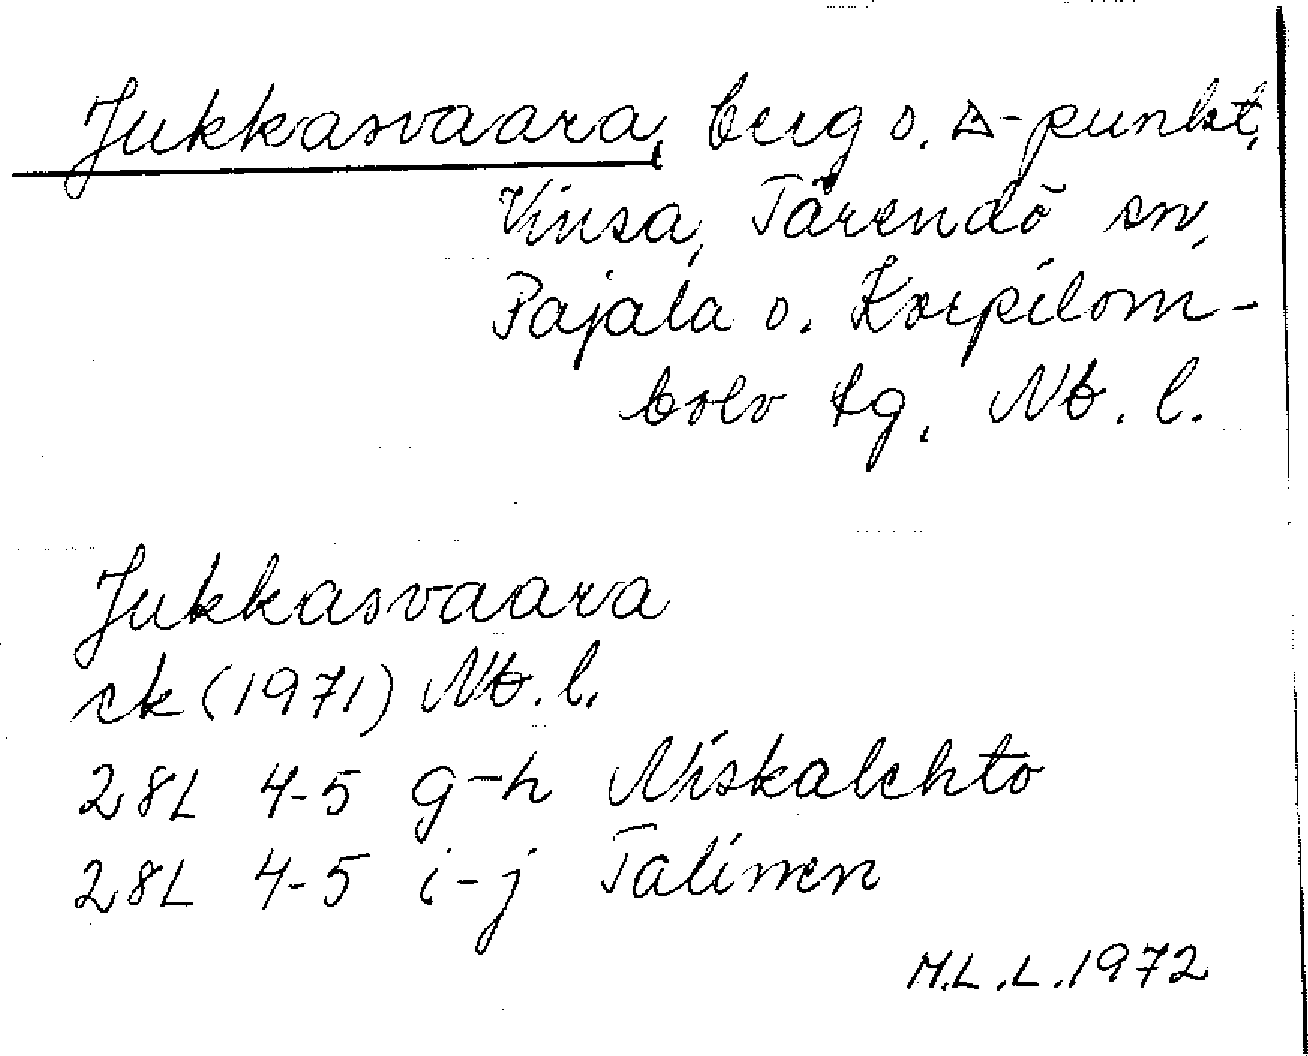 Jukkasvaara, berg o. △-punkt,
Vinsa, Tärendö sn,
Pajala o. Korpilom-
bolo tg, Nb. l.
Jukkasvaara
ek (1971) Nb. l.
28L 4-5 g-h Niskalehto
28L 4-5 i-j Talinen
M.L.L. 1972